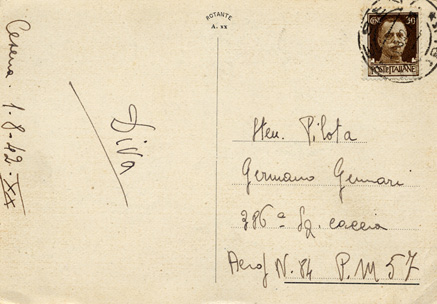 ROTANTE
A. XX
POSTE ITALIANE
Cesena. 1-8-42-XX
Diva
Sten. Pilota
Germano Gennari
386ª Sq. caccia
Aerop N. 84 P.M 57